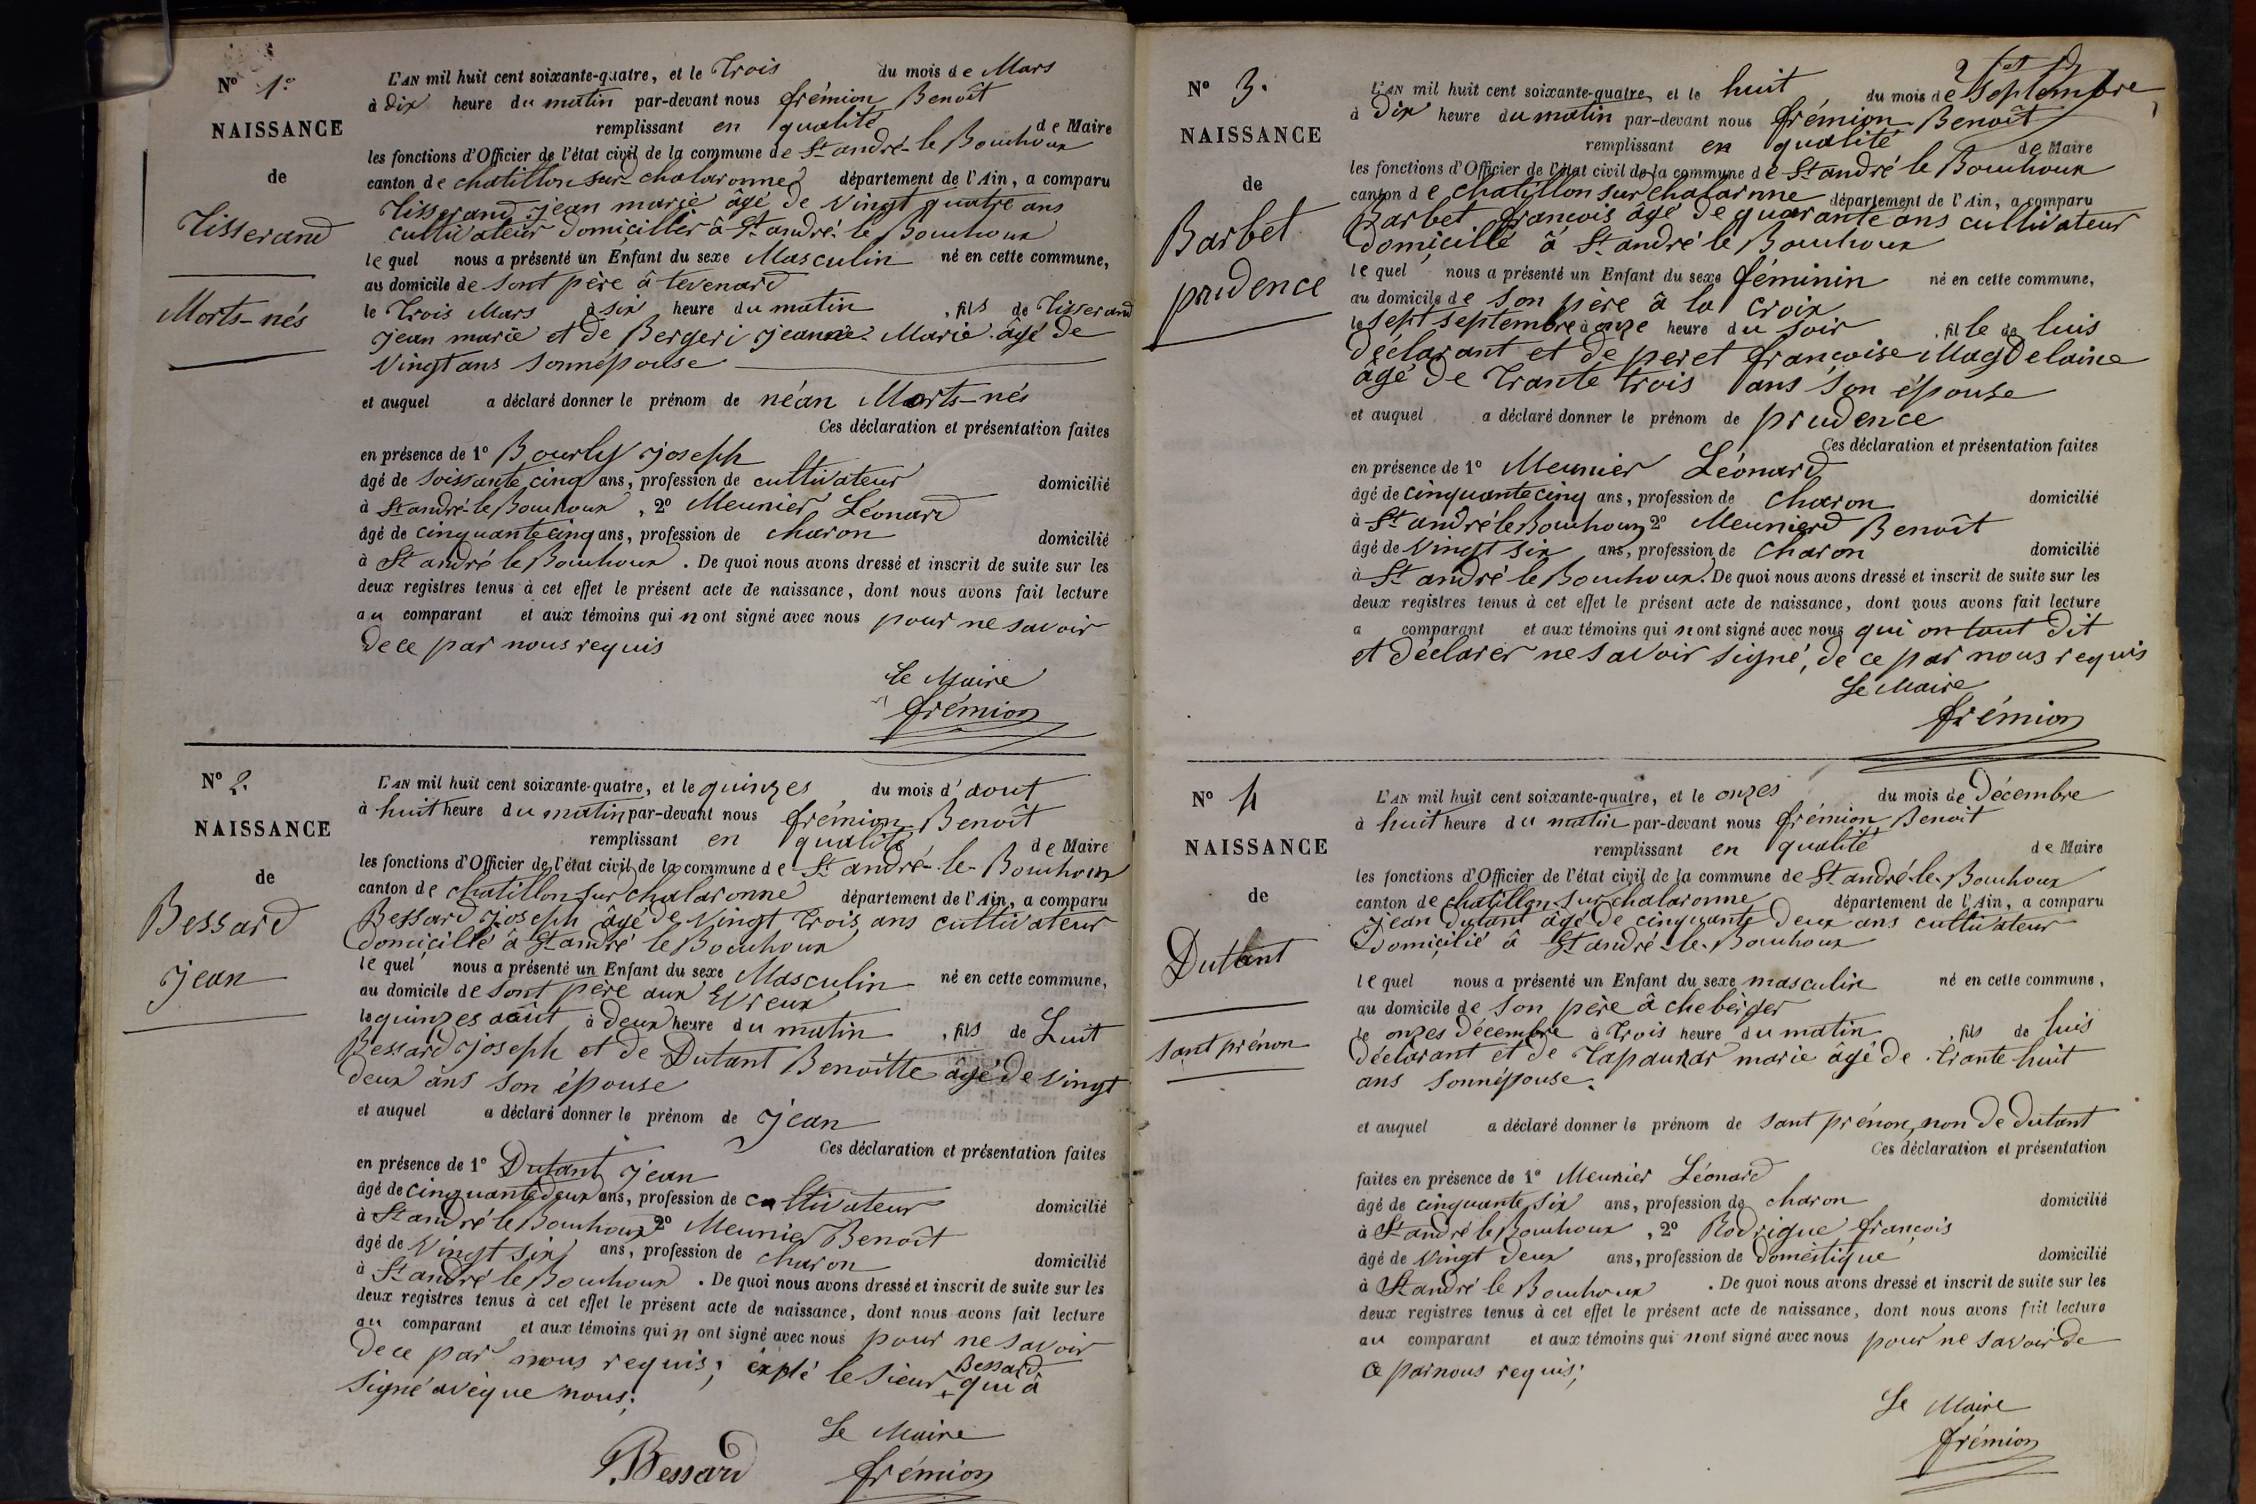 N° 1er
NAISSANCE
de
Tisserand
Morts-nés
L'AN mil huit cent soixante-quatre, et le Trois du mois de Mars
à dix heure du matin par-devant nous frémion Benoît
remplissant en qualité de Maire
les fonctions d'Officier de l'état civil de la commune de St andré-le Bouchoux
canton de chatillon sur chalaronne département de l'Ain, a comparu
Tisserand jean marie âgé de vingt quatre ans
cultivateur domicillier à St andré-le Bouchoux
lequel nous a présenté un Enfant du sexe Masculin né en cette commune,
au domicile de sont père â tevenard
le Trois Mars à six heure du matin, fils de Tisserand
jean marie et de Bergeri jeanne-Marie âgé de
vingt ans sonnépouse
et auquel a déclaré donner le prénom de néan Morts-nés
Ces déclaration et présentation faites
en présence de 1° Bourly joseph
âgé de soissante cinq ans, profession de cultivateur domicilié
à St andré-le Bouchoux, 2° Meunier Léonard
âgé de cinquante cinq ans, profession de charon domicilié
à St andré le Bouchoux. De quoi nous avons dressé et inscrit de suite sur les
deux registres tenus à cet effet le présent acte de naissance, dont nous avons fait lecture
au comparant et aux témoins qui n ont signé avec nous pour ne savoir
de ce par nous requis
Le Maire
frémion
N° 2.
NAISSANCE
de
Bessard
jean
L'AN mil huit cent soixante-quatre, et le quinzes du mois d'aout
à huit heure du matin par-devant nous frémion Benoît
remplissant en qualité de Maire
les fonctions d'Officier de l'état civil de la commune de St andré-le-Bouchoux
canton de chatillon sur chalaronne département de l'Ain, a comparu
Bessard joseph âgé de vingt trois ans cultivateur
domicillé à St andré le Bouchoux
lequel nous a présenté un Enfant du sexe Masculin né en cette commune,
au domicile de sont père aux Evreux
le quinzes août à deux heure du matin, fils de Luit
Bessard joseph et de Dutant Benoitte âgé de vingt
deux ans son épouse
et auquel a déclaré donner le prénom de jean
Ces déclaration et présentation faites
en présence de 1° Dutant jean
âgé de cinquante deux ans, profession de cultivateur domicilié
à St andré le Bouchoux 2° Meunier Benoît
âgé de vingt six ans, profession de charon domicilié
à St andré le Bouchoux. De quoi nous avons dressé et inscrit de suite sur les
deux registres tenus à cet effet le présent acte de naissance, dont nous avons fait lecture
au comparant et aux témoins qui n ont signé avec nous pour ne savoir
de ce par nous requis; éxpté le sieur Bessard qui à
signé avèque nous;
Bessard
Le Maire
frémion
N° 3.
NAISSANCE
de
Barbet
prudence
L'AN mil huit cent soixante-quatre, et le huit du mois de Septembre
à dix heure du matin par-devant nous frémion Benoît
remplissant en qualité de Maire
les fonctions d'Officier de l'état civil de la commune de St andré le Bouchoux
canton de chatillon sur chalaronne département de l'Ain, a comparu
Barbet françois âgé de quarante ans cultivateur
domicillé à St andré le Bouchoux
lequel nous a présenté un Enfant du sexe féminin né en cette commune,
au domicile de son père à la croix
le sept septembre à onze heure du soir, fille de luis
déclarant et de peret françoise Magdelaine
âgé de trante trois ans son épouse
et auquel a déclaré donner le prénom de prudence
Ces déclaration et présentation faites
en présence de 1° Meunier Léonard
âgé de cinquante cinq ans, profession de charon domicilié
à St andré le Bouchoux 2° Meunierd Benoît
âgé de vingt six ans, profession de charon domicilié
à St andré le Bouchoux. De quoi nous avons dressé et inscrit de suite sur les
deux registres tenus à cet effet le présent acte de naissance, dont nous avons fait lecture
a comparant et aux témoins qui n ont signé avec nous qui on tout dit
et déclarer ne savoir signé, de ce par nous requis
Le Maire
frémion
N° 4
NAISSANCE
de
Dutant
sant prénon
L'AN mil huit cent soixante-quatre, et le onzes du mois de Décembre
à huit heure du matin par-devant nous frémion Benoit
remplissant en qualité de Maire
les fonctions d'Officier de l'état civil de la commune de St andré-le-Bouchoux
canton de chatillon sur chalaronne département de l'Ain, a comparu
Jean dutant âgé de cinquante deux ans cultivateur
domicilié à St andré-le-Bouchoux
lequel nous a présenté un Enfant du sexe masculin né en cette commune,
au domicile de son père à cheberger
le onzes décembre à trois heure du matin, fils de luis
déclarant et de Tapaunar marie âgé de trante huit
ans sonnépouse.
et auquel a déclaré donner le prénom de sant prénon, non de dutant
Ces déclaration et présentation
faites en présence de 1° Meunier Léonard
âgé de cinquante six ans, profession de charon domicilié
à St andré le Bouchoux, 2° Rodrigue françois
âgé de vingt deux ans, profession de domestique domicilié
à St andré le Bouchoux. De quoi nous avons dressé et inscrit de suite sur les
deux registres tenus à cet effet le présent acte de naissance, dont nous avons fait lecture
au comparant et aux témoins qui n ont signé avec nous pour ne savoir de
ce par nous requis;
Le Maire
frémion